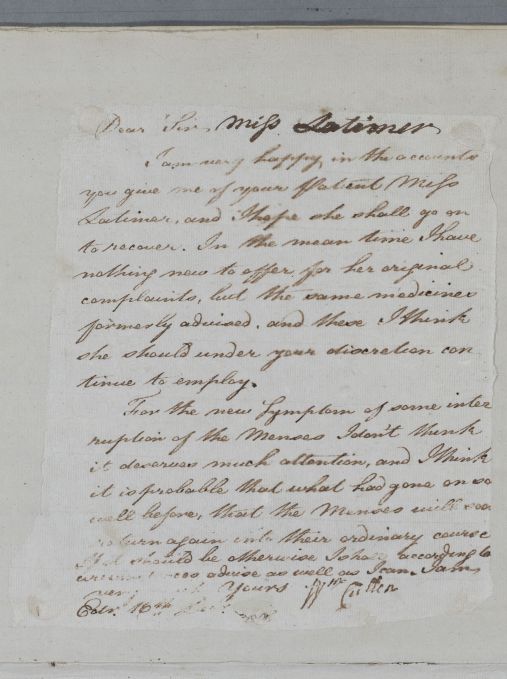 Dear Sir, Miss Latimer
I am very happy in the accounts
you give me of your Patient Miss
Latimer, and I hope she shall go on
to recover. In the mean time I have
nothing new to offer for her original
complaints, but the same medicines
formerly advised, and these I think
she should under your discretion con
tinue to employ.
For the new Symptom of some inter
ruption of the Menses I don't think
it deserves much attention, and I think
it is probable that what had gone on so
well before, that the Menses will soon
return again into their ordinary course
If it should be otherwise I shall according to
circumstances advise as well as I can. I am
very Yours Wm Cullen
Edr. 16th